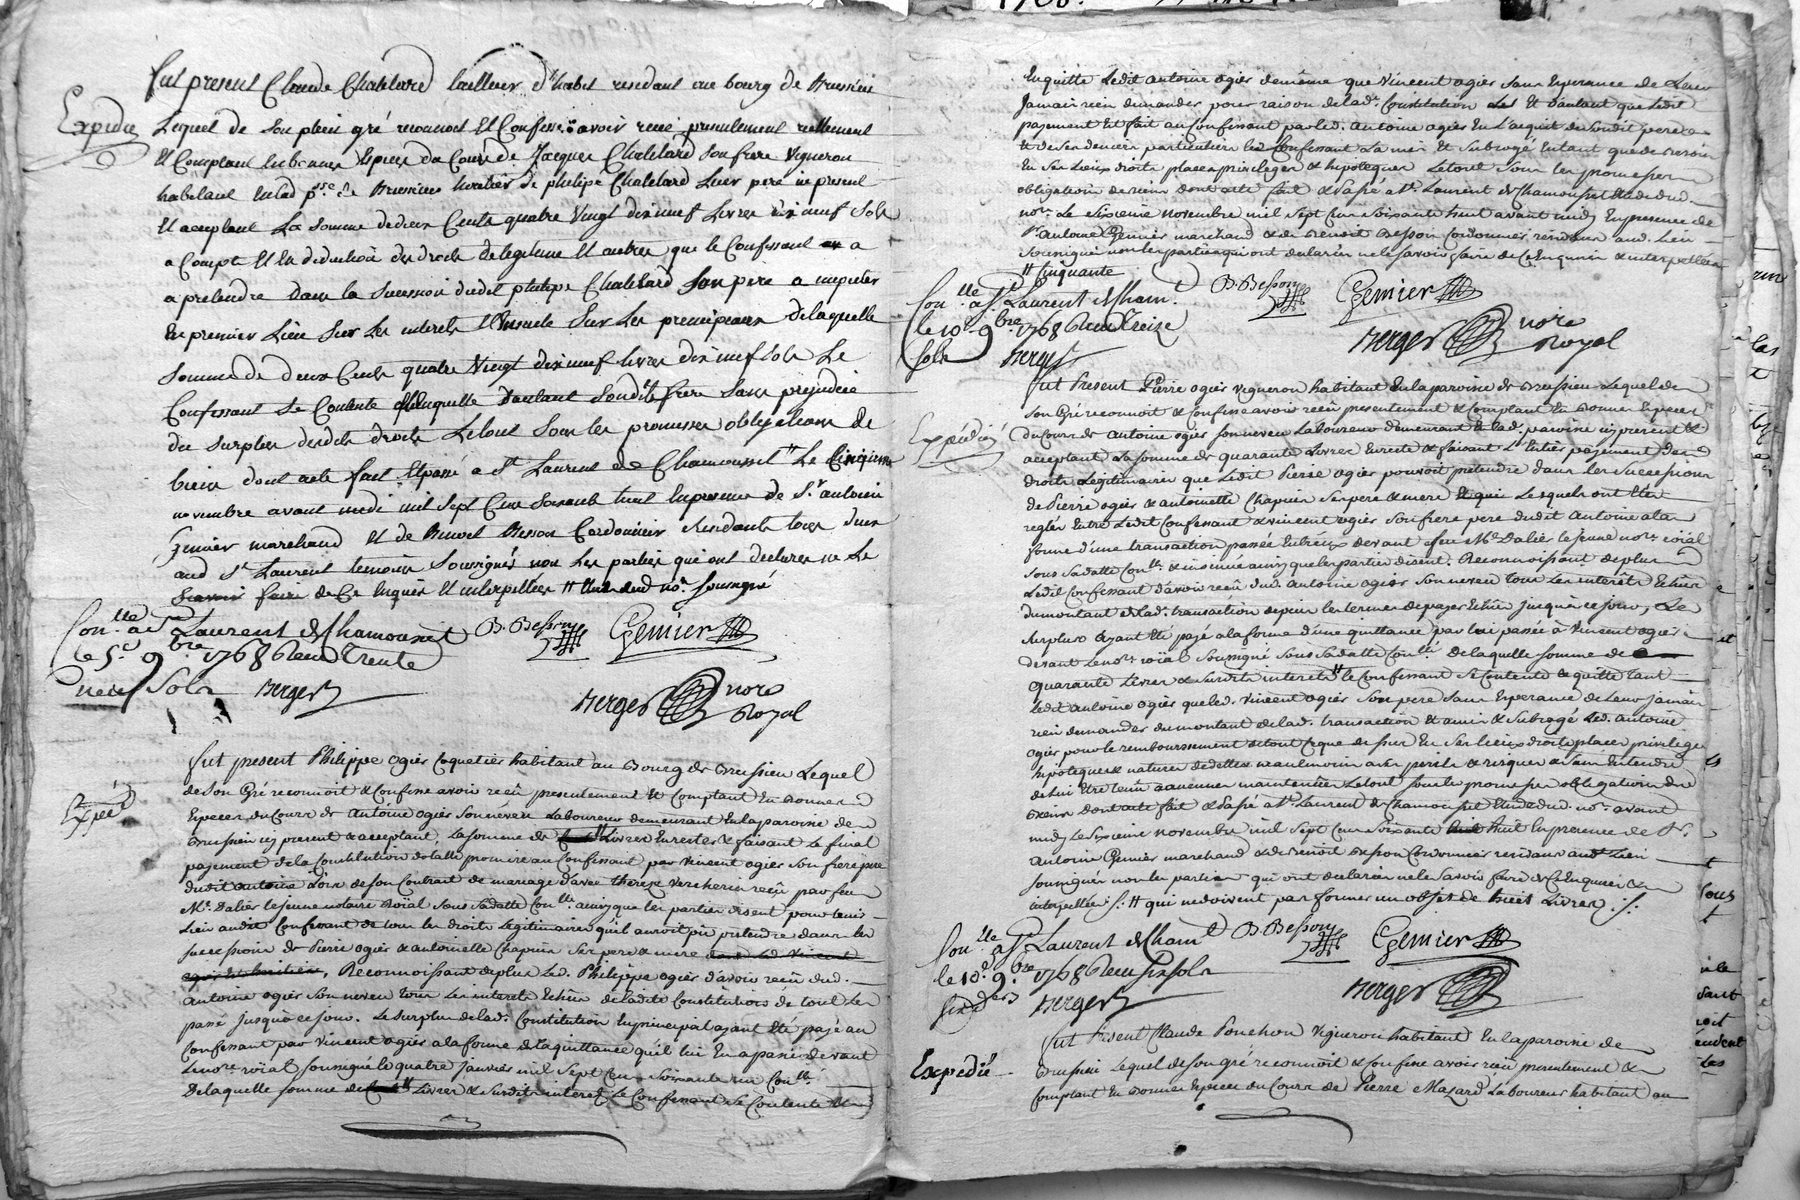 fut present Claude Chatelard tailleur d'habit residant au bourg de Brussieu
Expedié
Lequel de son plein gré reconnoit et Confesse avoir receu presentement reellement
et Comptant en bonnes Espece du Cours de Jacques Chatelard son frere Vigneron
habitant en lad p.sse de Brussieu heritier de philipe Chatelard Leur pere ici present
et acceptant La somme de deux Cents quatre Vingt dix neuf Livres dix neuf sols
a Compte et en deduction des droits de legitime et autres que le Confessant a
a pretendre dans la Sucession dudit philipe Chatelard son pere a imputer
en premier Lieu sur les interets Ensuite sur les principaux de laquelle
somme de deux Cents quatre Vingt dix neuf livres dix neuf sols Le
Confessant se Contente et en quitte d'autant sondit frere sans prejudice
du surplus desdits droits Le tout sous les promesses obligations de
biens dont acte fait et passé a St Laurent de Chamousset Le Cinquieme
novembre avant midi mil sept Cens soixante huit En presence de Sr antoine
Gemier marchand et de Benoit Besson Cordonnier residants tous deux
aud St Laurent temoins Soussignés non Les parties qui ont declarés ne Le
scavoir faire de Ce Enquis et interpellées # soussigné
Con.lle a St Laurent de Chamousset B. Besson Gemier
le 5e 9bre 1768 Reçu Trente
neuf Sols Berger
Berger nore
Royal
fut present Philippe ogier Coquetier habitant au Bourg de Brussieu Lequel
Expédié
de son Gré reconnoit & Confesse avoir reçû presentement et Comptant En Bonnes
Especes du Cours de Antoine ogier son néveu Laboureur demeurant En la paroisse de
Brussieu icy present & acceptant, la somme de Livres En reste & faisant Le final
payement de la Constitution dotalle promise au Confessant par vincent ogier son frere pere
dudit antoine Lors de son Contrat de mariage d'avec therese vercherin reçû par feu
Me Daliés le jeune notaire Roïal sous sa datte Con.llé ainsy que les parties disent pour tenir
Lieu audit Confessant de tous les droits Legitimaires qu'il auroit pû pretendre dans les
successions de Pierre ogier & antoinette Chapuis ses pere & mere
Reconnoissant de plus Led. Philippe ogier d'avoir reçû dud.
antoine ogier son neveu tous Les interets Echûs de ladite Constitution de tout Le
passé jusqu'à ce jour. Le surplus de lad. Constitution En principal ayant Eté payé au
Confessant par vincent ogier a la forme de la quittance qu'il lui En a passé devant
Le nore roïal soussigné le quatre janvier mil sept Cens soixante un Con.llé
De laquelle somme de Livres & susdits interets Le Confessant se Contente &
Enquitte Ledit antoine ogier de même que vincent ogier sans Esperance de Leur
Jamais rien demander pour raison de lad. Constitution Les Et d'autant que Ledit
payement Est fait au Confessant par led. Antoine ogier En L'acquit de sondit pere
Et de ses deniers particuliers Led Confessant La mis Et subrogé En tant que de besoin
En ses Lieux droits places privileges & hipoteques Le tout sous Les promesses
obligations de biens Dont acte fait & Passé a St Laurent de Chamousset Etude dud.
nore Le Sixieme novembre mil sept Cens soixante huit avant midy En presence de
Sr antoine Gemier marchand & de Benoit Besson Cordonnier residans aud. Lieu
Soussignés non les parties qui ont declarées ne le savoir faire de Ce Enquises & interpellées
# Cinquante
Con.lle a St Laurent de Cham.t B. Besson Gemier
le 10e 9bre 1768 Reçu Treize
sols Berger
Berger nore
Royal
fut Present Pierre ogier vigneron habitant En la paroisse de Brussieu Lequel de
Expédié
son Gré reconnoit & Confesse avoir reçû presentement & Comptant En Bonnes Especes
du Cours de Antoine ogier son neveu Laboureur demeurant En lad. paroisse icy present &
acceptant La somme de quarante Livres En reste & faisant L'Entier payement des
droits Legitimaires que Ledit Pierre ogier pouvoit pretendre dans les successions
de Pierre ogier & antoinette Chapuis ses pere & mere Lesquels ont Eté
reglés Entre Ledit Confessant & vincent ogier son frere pere dudit Antoine a la
forme d'une transaction passée Entr'eux devant feu Me Daliés le jeune nore roïal
sous sa datte Con.llé & insinuée ainsy que les parties disent. Reconnoissant de plus
Ledit Confessant d'avoir reçû dud. Antoine ogier son neveu tous Les interêts Echus
du montant de lad. transaction depuis les termes de payer Echûs jusqu'à ce jour, Le
surplus ayant Eté payé a la forme d'une quittance par lui passée à Vincent ogier
devant Le nore roïal soussigné sous sa datte Con.llé De laquelle somme de
quarante Livres & susdits interets # le Confessant se Contente & quitte tant
Ledit Antoine ogier que led. vincent ogier son pere sans Esperance de Leur jamais
rien demander du montant de lad. transaction Et a mis & subrogé Led. antoine
ogier pour le remboursement de tout ce que dessus En ses Lieux droits places privileges
hipoteques & natures de dettes neanmoins a ses perils & risques & sans Entendre
de lui Etre tenu a aucunes maintenües Le tout sous les promesses obligations de
Biens Dont acte fait & Passé a St Laurent de Chamousset Etude dud. nore avant
midy Le Sixieme novembre mil sept Cens soixante huit En presence de Sr.
Antoine Gemier marchand & de Benoit Besson Cordonnier residans aud Lieu
soussignés non les parties qui ont declarées ne le savoir faire de Ce Enquises &
interpellées /: # qui ne doivent pas former un objet de huit Livres :/:
Con.lle a St Laurent de Cham.t B. Besson Gemier
le 10e 9bre 1768 Reçu six sols
six ders Berger
Berger
fut Present Claude Ponchon vigneron habitant En la paroisse de
Expedié
Brussieu Lequel de son gré reconnoit & Confesse avoir reçû presentement &
Comptant En Bonnes Especes du Cours de Pierre Mazard Laboureur habitant au